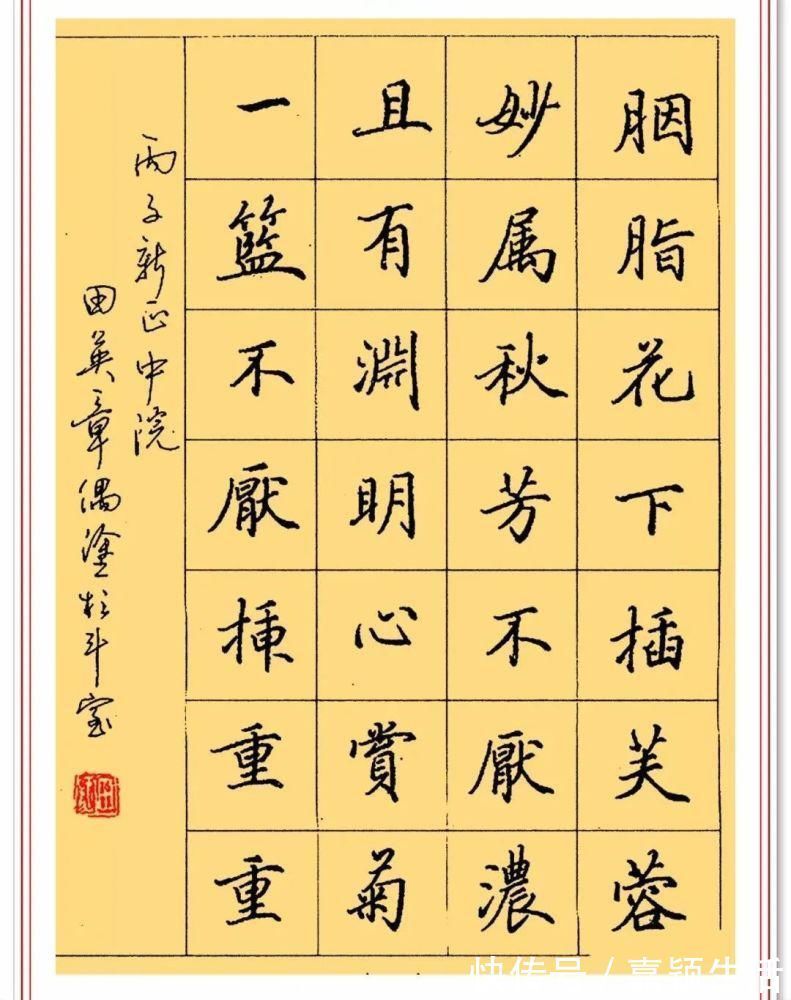 胭脂花下插芙蓉
妙属秋芳不厭濃
且有淵明心賞菊
一籃不厭插重重
丙子新正中院
田英章偶塗於斗室
快传号/嘉颖生活